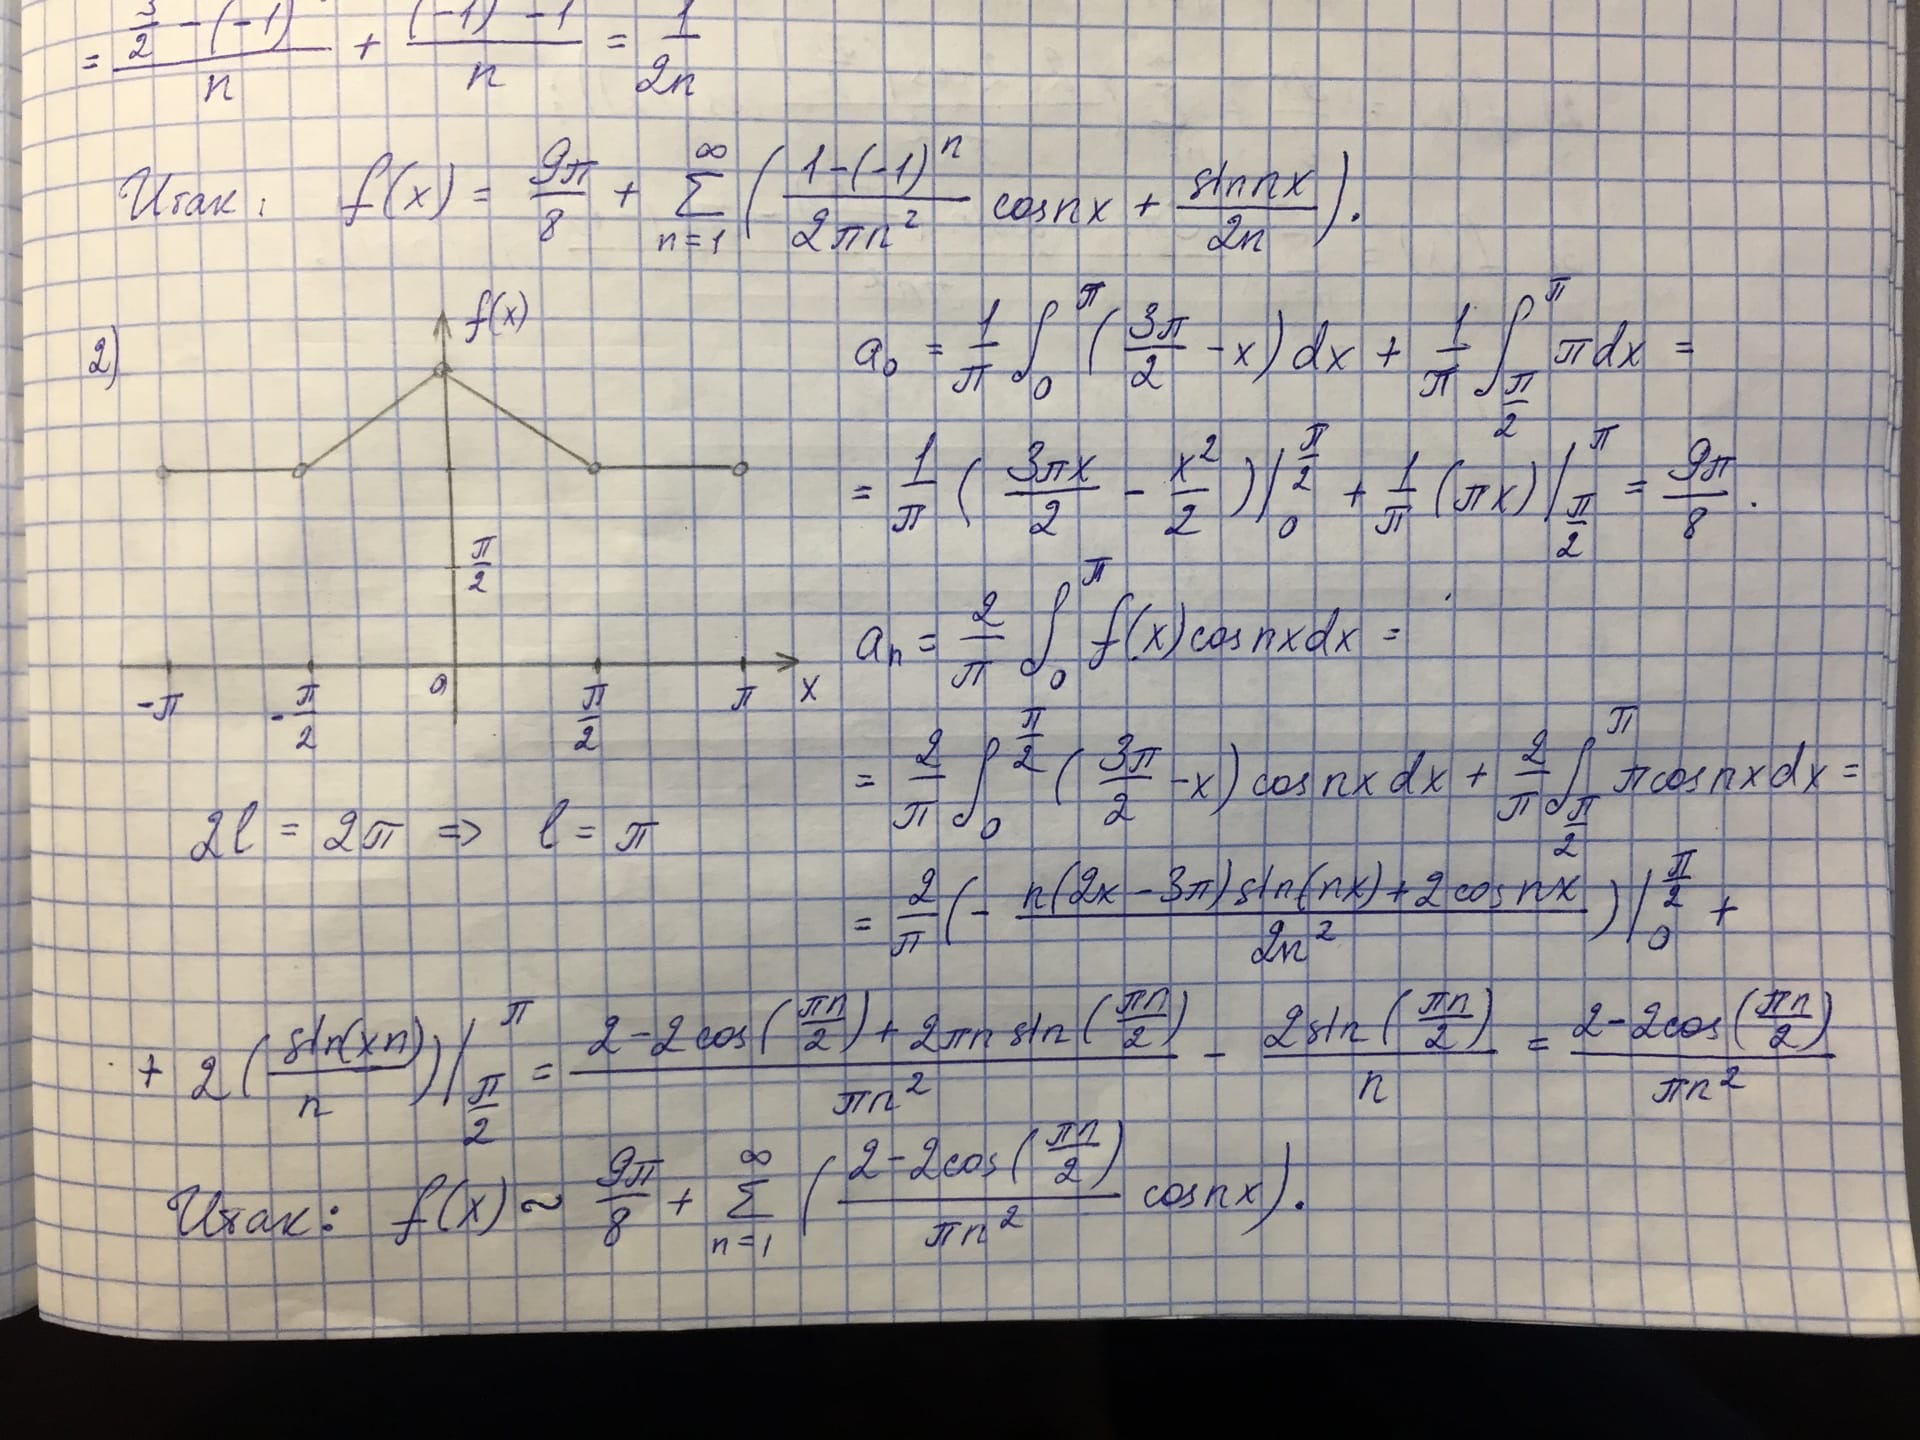 = (3/2 − (−1))/n + ((−1) − 1)/n = 1/2n
Итак: f(x) = 9π/8 + ∑_{n=1}^{∞} ( (1−(−1)^n)/(2πn²) cosnx + sinnx/2n ).
2)
f(x)
π/2
-π -π/2 0 π/2 π x
2l = 2π => l = π
a₀ = 1/π ∫_0^π (3π/2 − x) dx + 1/π ∫_{π/2}^π π dx =
= 1/π ( 3πx/2 − x²/2 )|_0^{π/2} + 1/π (πx)|_{π/2}^π = 9π/8 .
aₙ = 2/π ∫_0^π f(x) cosnxdx =
= 2/π ∫_0^{π/2} (3π/2 − x) cosnxdx + 2/π ∫_{π/2}^π πcosnxdx =
= 2/π (− (n(2x − 3π) sin(nx) + 2cosnx)/(2n²) )|_0^{π/2} +
+ 2 ( sin(xn)/n )|_{π/2}^π = (2 − 2cos(πn/2) + 2πn sin(πn/2))/(πn²) − 2sin(πn/2)/n = (2 − 2cos(πn/2))/(πn²)
Итак: f(x) ~ 9π/8 + ∑_{n=1}^{∞} ( (2 − 2cos(πn/2))/(πn²) cosnx ).